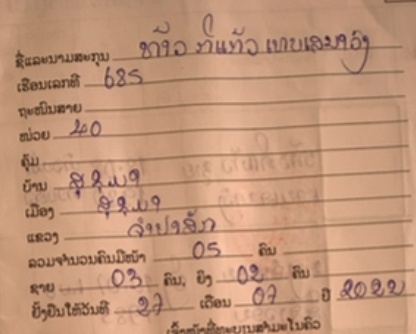 ຊື່ແລະນາມສະກຸນ ທ້າວ ກໍ່ແກ້ວ
ເຮືອນເລກທີ 685
ຖະໜົນສາຍ
ໜ່ວຍ 40
ຄຸ້ມ
ບ້ານ ສຸຂຸມາ
ເມືອງ ສຸຂຸມາ
ແຂວງ ຈຳປາສັກ
ລວມຈຳນວນຄົນມີໜ້າ 05 ຄົນ
ຊາຍ 03 ຄົນ, ຍິງ 02 ຄົນ
ຍັ້ງຢືນໃຫ້ວັນທີ 27 ເດືອນ 07 ປີ 2022